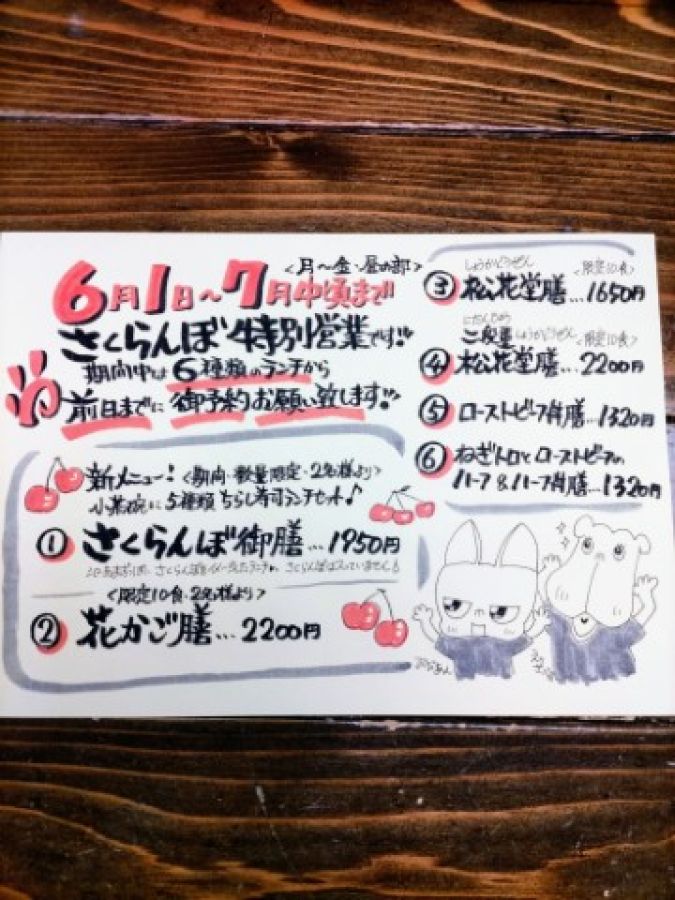 6月1日〜7月中頃まで
<月〜金・昼の部>
さくらんぼ特別営業です!!
期間中は6種類のランチから
前日までに御予約お願い致します!!
新メニュー!<期間・数量限定・2名様より>
小茶碗に5種類ちらし寿司ランチセット♪
① さくらんぼ御膳…1950円
さくらんぼは入っていません
<限定10食・2名様より>
② 花かご膳…2200円
しょうかどうぜん <限定10食>
③ 松花堂膳…1650円
にだんじゅう しょうかどうぜん <限定10食>
④ 二段重松花堂膳…2200円
⑤ ローストビーフ丼膳…1320円
⑥ ねぎトロとローストビーフの
ハーフ&ハーフ丼膳…1320円